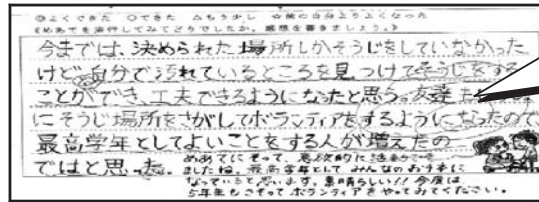 ◎よくできた ○できた △もう少し ☆前の自分よりよくなった
《めあてを実行してみてどうでしたか。感想を書きましょう。》
今までは、決められた場所しかそうじをしていなかった
けど、自分で汚れているところを見つけてそうじをする
ことができ、工夫できるようになったと思う。友達
にそうじ場所をさがしてボランティアをするようになったので
最高学年としてよいことをする人が増えたの
ではと思った。
めあてにそって、意欲的に活動
ましたね。最高学年として、みんなのお手本に
なっていると思います。素晴らしい!! 今度は
5年生もさそってボランティアをやってみてください。